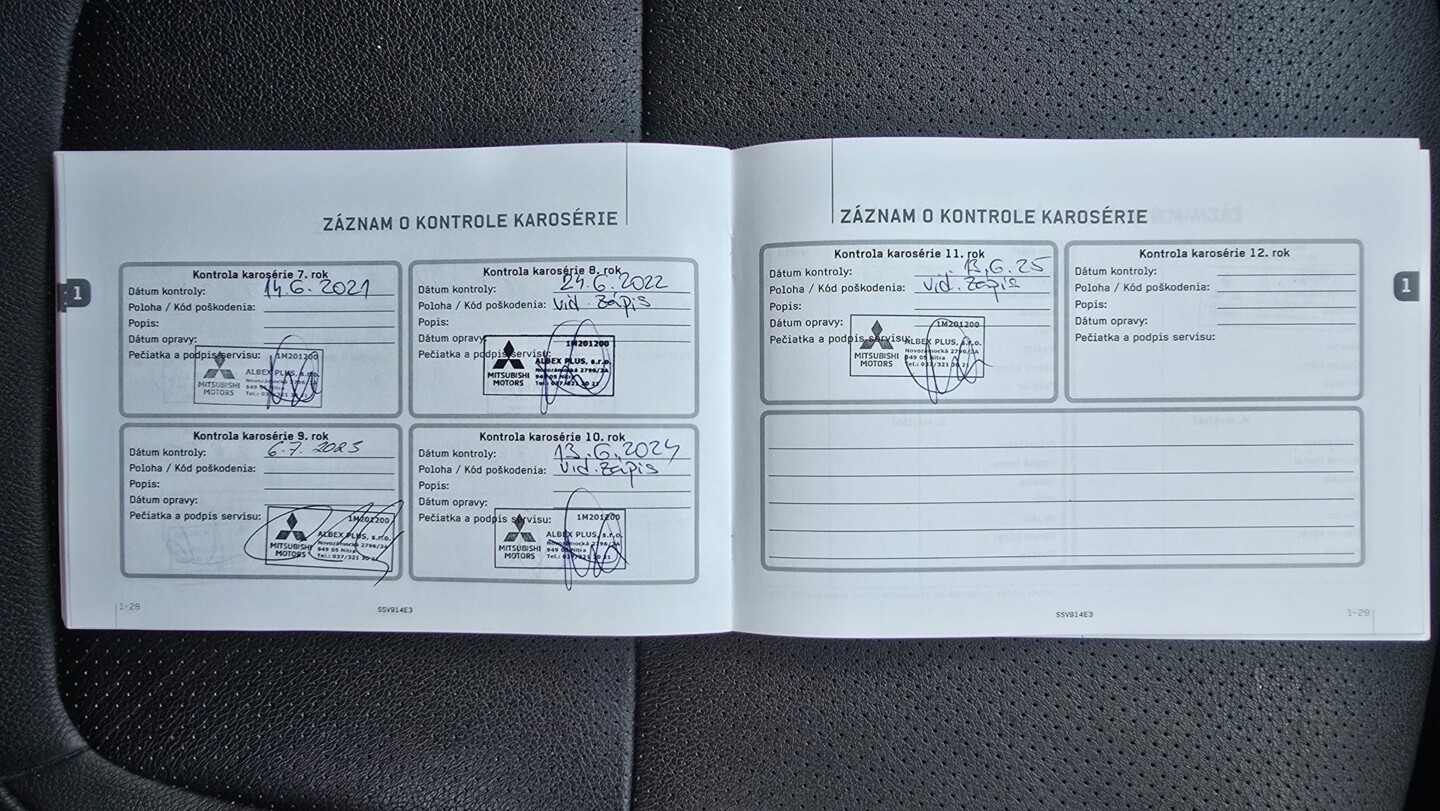 ZÁZNAM O KONTROLE KAROSÉRIE
1
Kontrola karosérie 7. rok
Dátum kontroly: 14.6.2021
Poloha / Kód poškodenia:
Popis:
Dátum opravy:
Pečiatka a podpis servisu:
1M201200
ALBEX PLUS, s.r.o.
Novozámocká 2796/
949 05 Nitra
Tel.: 037/321
MITSUBISHI
MOTORS
Kontrola karosérie 8. rok
Dátum kontroly: 24.6.2022
Poloha / Kód poškodenia: vid. zápis
Popis:
Dátum opravy:
Pečiatka a podpis servisu:
1M201200
ALBEX PLUS, s.r.o.
Novozámocká 2796/3A
949 05 Nitra
Tel.: 037/321 30 21
MITSUBISHI
MOTORS
Kontrola karosérie 9. rok
Dátum kontroly: 6.7.2023
Poloha / Kód poškodenia:
Popis:
Dátum opravy:
Pečiatka a podpis servisu:
1M201200
ALBEX PLUS, s.r.o.
Novozámocká 2796/3A
949 05 Nitra
Tel.: 037/321
MITSUBISHI
MOTORS
Kontrola karosérie 10. rok
Dátum kontroly: 13.6.2024
Poloha / Kód poškodenia: vid. zápis
Popis:
Dátum opravy:
Pečiatka a podpis servisu:
1M201200
ALBEX PLUS, s.r.o.
Novozámocká 2796/3A
949 05 Nitra
Tel.: 037/321
MITSUBISHI
MOTORS
1-28
SSV914E3
ZÁZNAM O KONTROLE KAROSÉRIE
1
Kontrola karosérie 11. rok
Dátum kontroly: 13.6.25
Poloha / Kód poškodenia: vid. zápis
Popis:
Dátum opravy:
Pečiatka a podpis servisu:
1M201200
ALBEX PLUS, s.r.o.
Novozámocká 2796/3A
949 05 Nitra
Tel.: 037/321
MITSUBISHI
MOTORS
Kontrola karosérie 12. rok
Dátum kontroly:
Poloha / Kód poškodenia:
Popis:
Dátum opravy:
Pečiatka a podpis servisu:
SSV914E3
1-29